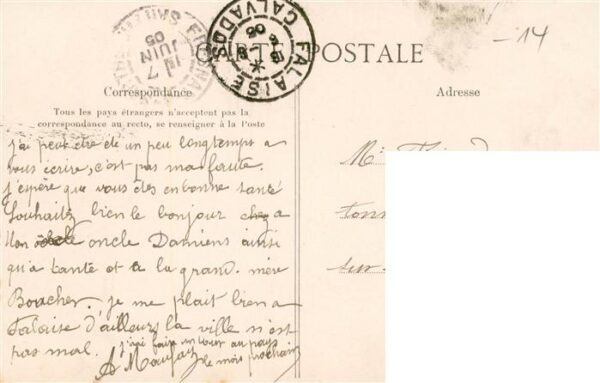 CARTE POSTALE
-14
FALAISE
CALVADOS
7
JUIN
05
Correspondance
Adresse
Tous les pays étrangers n'acceptent pas la
correspondance au recto, se renseigner à la Poste
j'ai peut être été un peu longtemps a
vous écrire, c'est pas ma faute.
j'espère que vous êtes en bonne santé
Souhaitez bien le bonjour chez a
Mon oncle Damiens ainsi
qu'a tante et a la grand. mère
Boucher. je me plait bien a
Falaise d'ailleurs la ville n'est
pas mal. j'irai faire un tour au pays
le mois prochain
A
M
tonn
sur